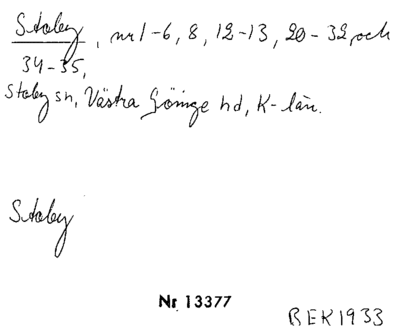 Stoby, nr 1-6, 8, 12-13, 20-32, och
34-35,
Stoby sn, Västra Göinge hd, K-län.
Stoby
Nr 13377
BEK1933